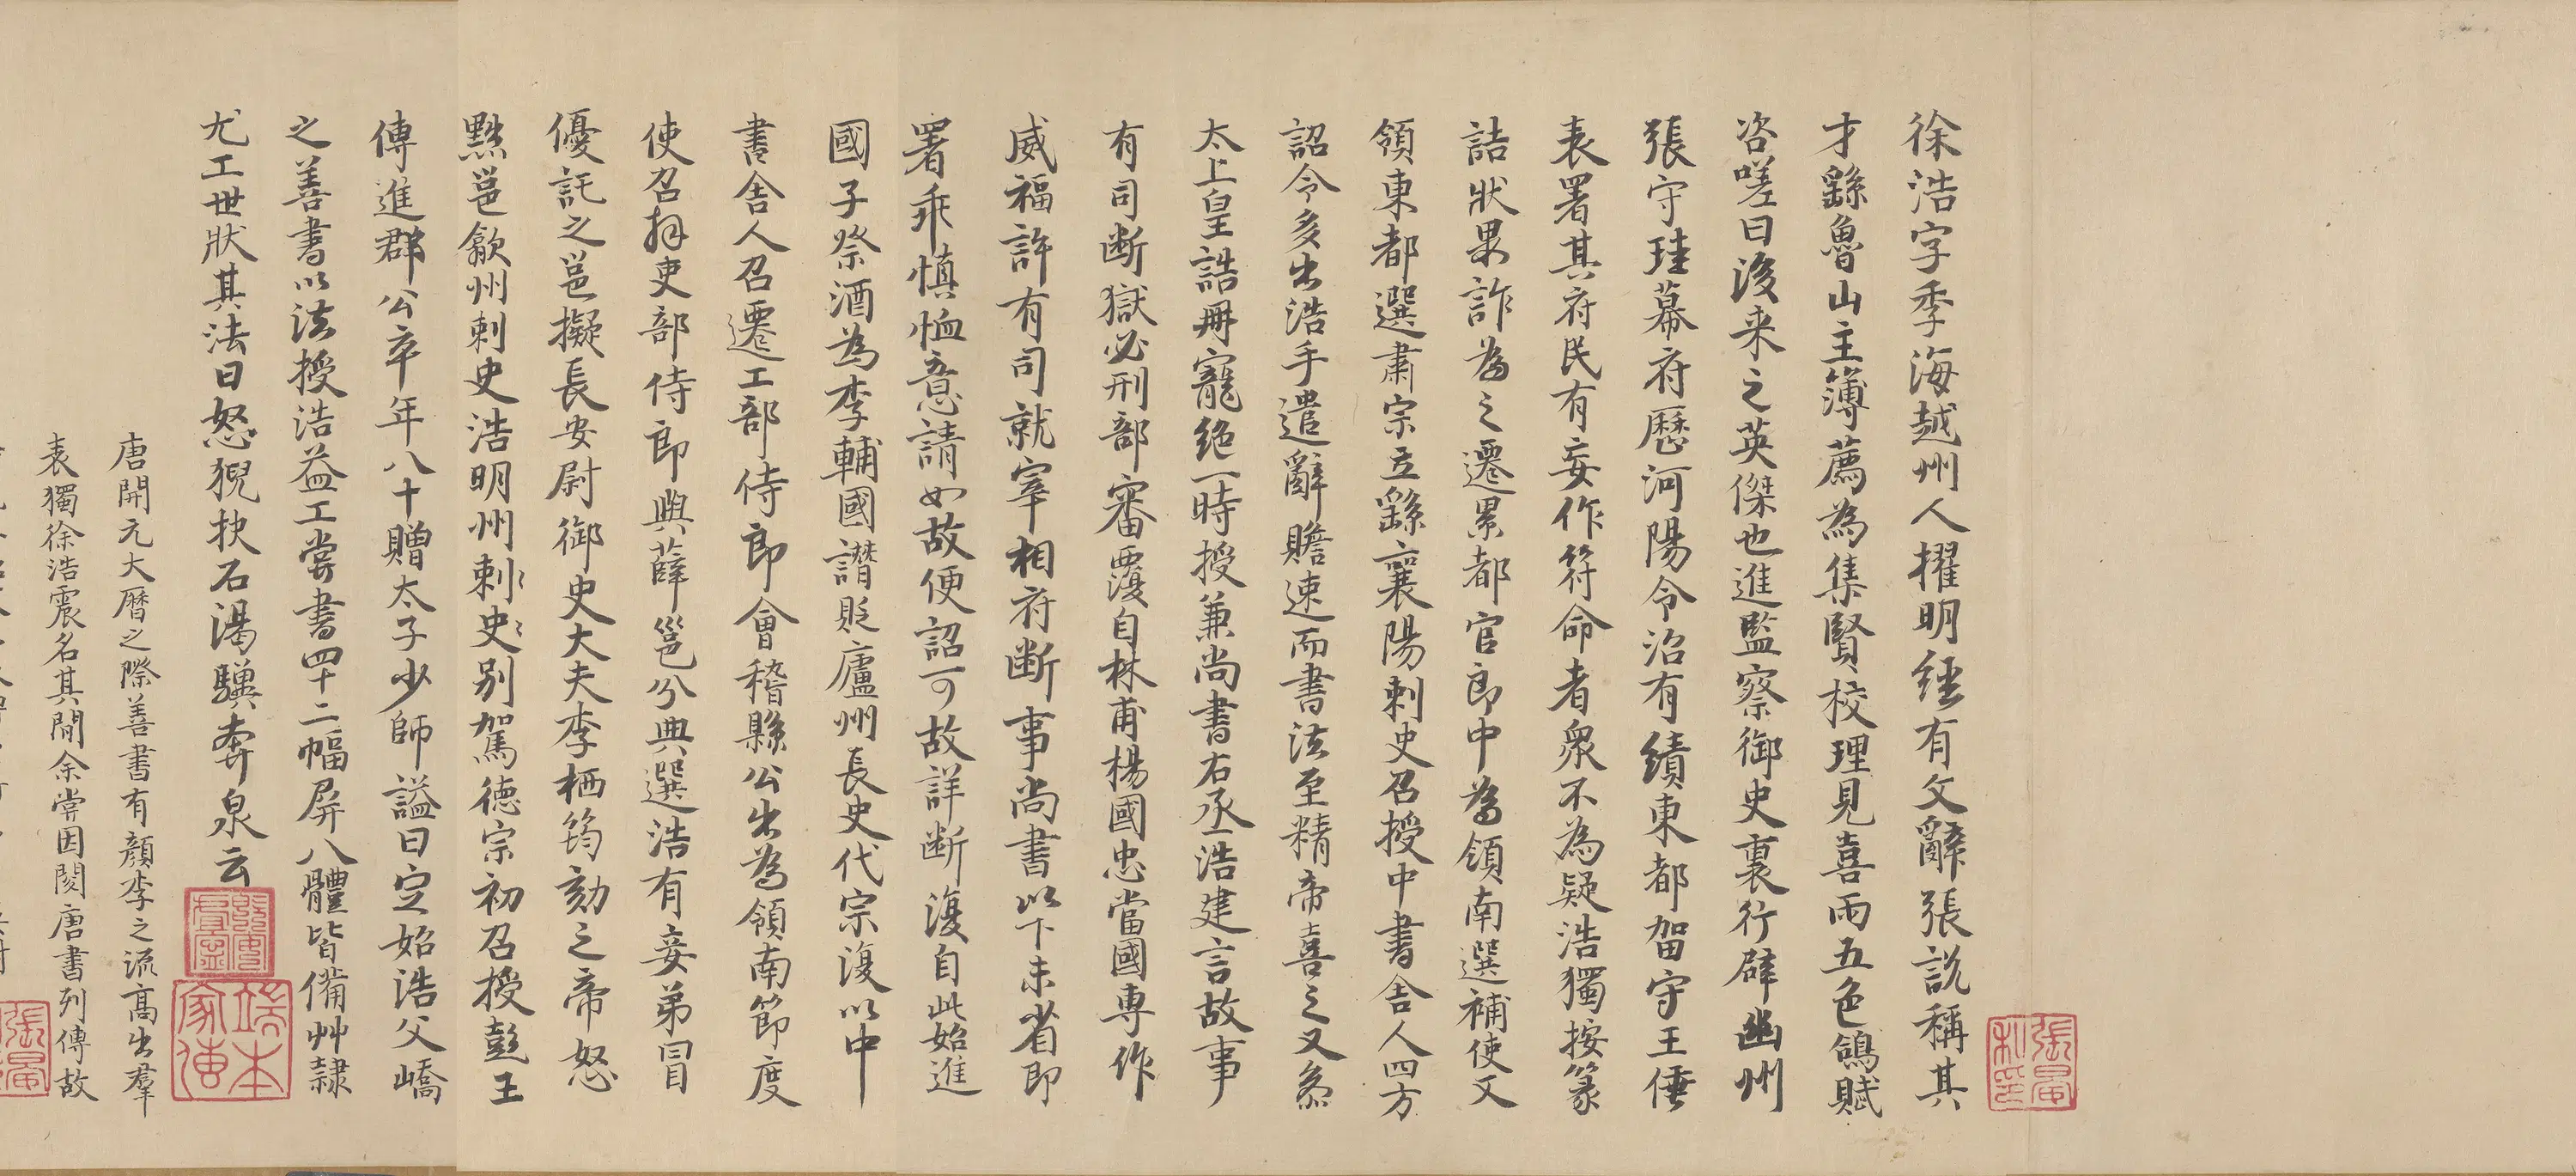 徐浩字季海越州人擢明經有文辭張說稱其
才繇魯山主薄薦為集賢校理見喜雨五色鴿賦
咨嗟曰後来之英傑也進監察御史裏行辟幽州
張守珪幕府歷河陽令治有績東都留守王倕
表署其府民有妄作符命者衆不為疑浩獨按篆
詰狀果詐為之遷累都官郎中為領南選補使又
領東都選肅宗立繇襄陽刺史召授中書舍人四方
詔令多出浩手遣辭贍速而書法至精帝喜之又叅
太上皇誥冊寵絶一時授兼尚書右丞浩建言故事
有司断獄必刑部審覆自林甫楊國忠當國専作
威福許有司就宰相府断事尚書以下未省即
署乖慎恤意請如故便詔可故詳断復自此始進
國子祭酒為李輔國譖貶廬州長史代宗復以中
書舍人召遷工部侍郎會稽縣公出為領南節度
使召拜吏部侍郎與薛邕分典選浩有妾弟冒
優託之邕擬長安尉御史大夫李栖筠劾之帝怒
黜邕歙州刺史浩明州刺史別駕德宗初召授彭王
傅進郡公卒年八十贈太子少師謚曰定始浩父嶠
之善書以法授浩益工嘗書四十二幅屏八體皆備艸隸
尤工世狀其法曰怒猊抉石渴驥奔泉云
唐開元大曆之際善書有顏李之流高出羣
表獨徐浩震名其間余嘗因閱唐書列傳故